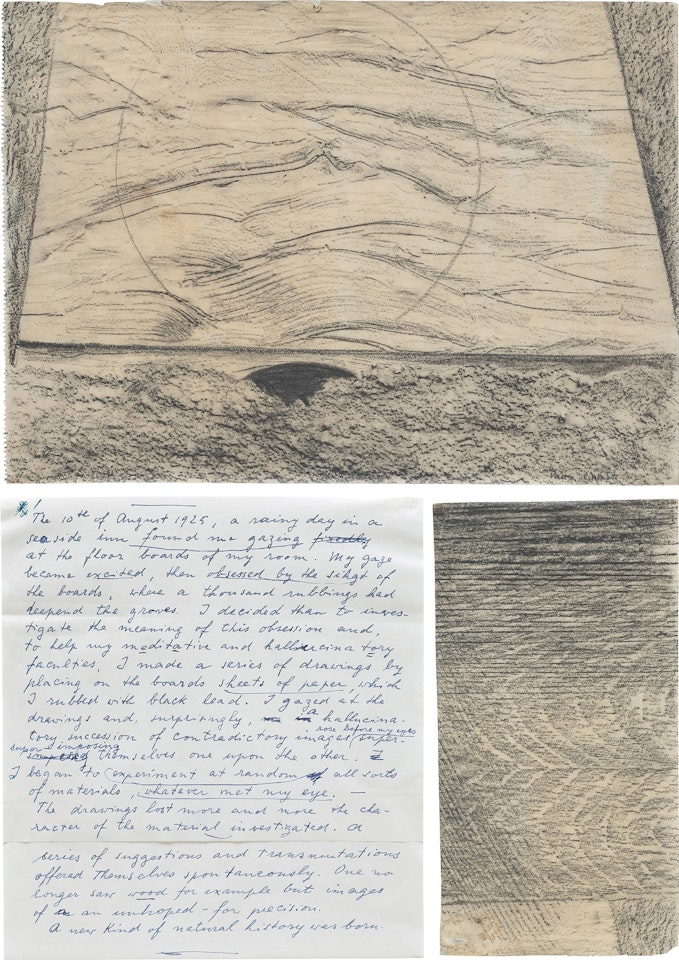 The 10th of August 1925, a rainy day in a
seaside inn found me gazing fixedly
at the floor boards of my room. My gaze
became excited, then obsessed by the sihgt of
the boards, where a thousand rubbings had
deepend the groves. I decided than to inves-
tigate the meaning of this obsession and,
to help my meditative and hallucinatory
faculties, I made a series of drawings by
placing on the boards sheets of paper, which
I rubbed with black lead. I gazed at the
drawings and, surprisingly, a hallucina-
tory succession of contradictory images rose before my eyes super-
imposing themselves one upon the other.
I began to experiment at random all sorts
of materials, whatever met my eye. —
The drawings lost more and more the cha-
racter of the material investigated. A
series of suggestions and transmutations
offered themselves spontaneously. One no
longer saw wood for example but images
of an unhoped-for precision.
A new kind of natural history was born.